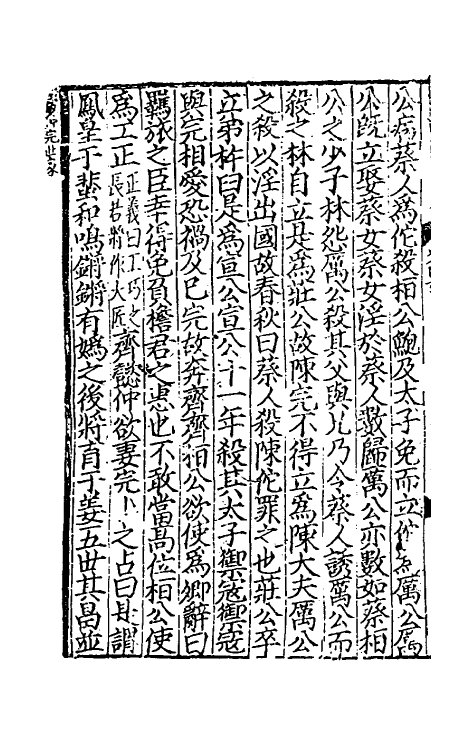 公病蔡人爲佗殺相公鮑及太子免而立佗爲厲公厲
公旣立娶蔡女蔡女淫於蔡人數歸厲公亦數如蔡相
公之少子林怨厲公殺其父與兄乃令蔡人誘厲公而
殺之林自立是爲莊公故陳完不得立爲陳大夫厲公
之殺以淫出國故春秋曰蔡人殺陳佗罪之也莊公卒
立弟杵臼是爲宣公宣公十一年殺其太子禦寇禦寇
與完相愛恐禍及已完故奔齊齊桓公欲使爲卿辭曰
羈旅之臣幸得免負檐君之惠也不敢當高位桓公使
爲工正正義曰工巧之長若將作大匠齊懿仲欲妻完卜之占曰是謂
鳳皇于蜚和鳴鏘鏘有嬀之後將育于姜五世其昌並
完世家